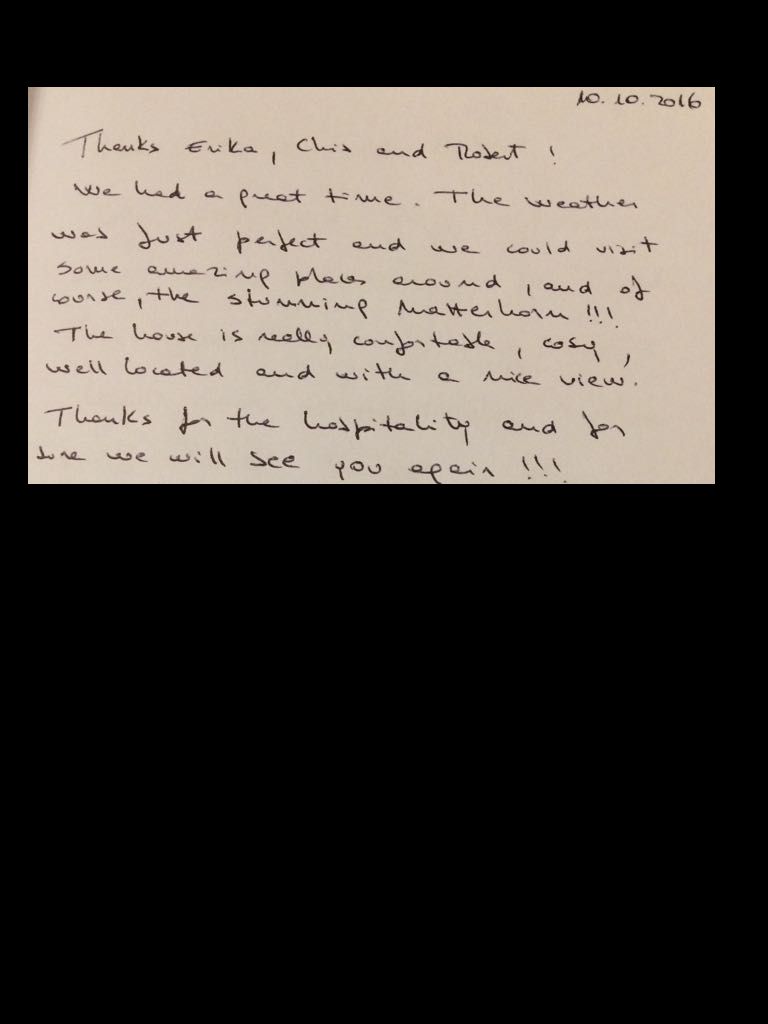 10.10.2016
Thanks Erika, Chis and Robert !
We had a great time. The weather
was just perfect and we could visit
some amazing places around, and of
course, the stunning Matterhorn !!!
The house is really confortable, cosy,
well located and with a nice view.
Thanks for the hospitality and for
sure we will see you again !!!